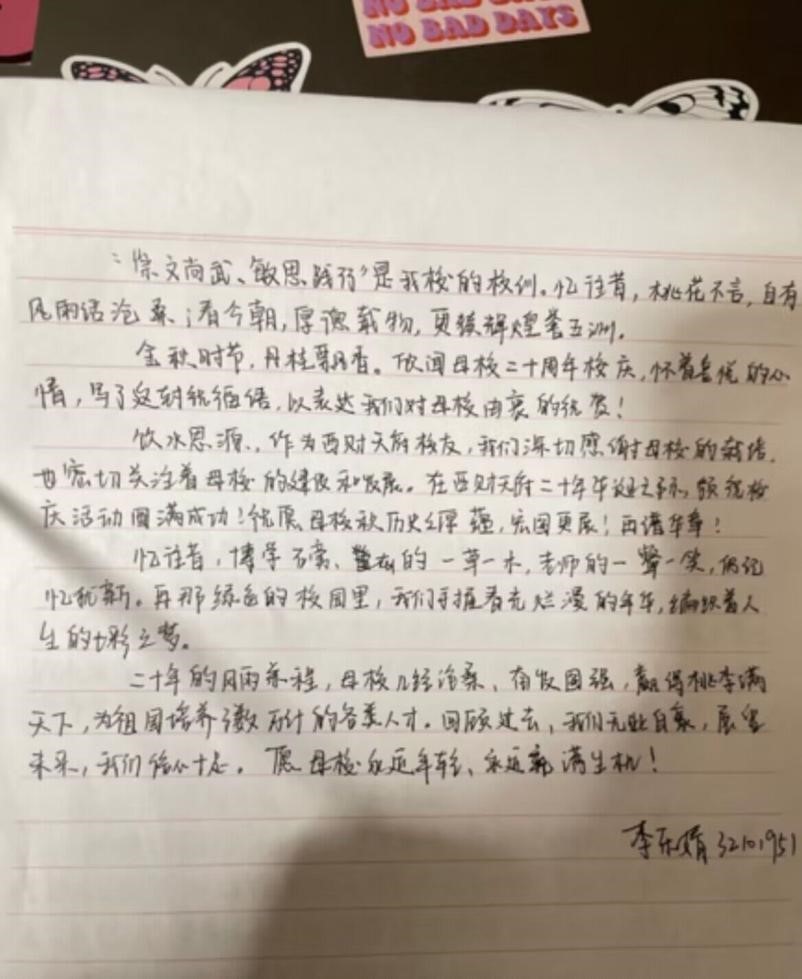 NO BAD DAYS
NO BAD DAYS
“崇文尚武、敏思践行”是我校的校训。忆往昔，桃花不言，自有
风雨话沧桑；看今朝，厚德载物，更续辉煌誉五洲。
金秋时节，丹桂飘香。欣闻母校二十周年校庆，怀着喜悦的心
情，写了这封祝福语，以表达我们对母校由衷的祝贺！
饮水思源，作为西财天府校友，我们深切感谢母校的栽培，
也密切关注着母校的建设和发展。在西财天府二十年华诞之际，预祝校
庆活动圆满成功！祝愿母校秋历史之厚蕴，宏图更展！再谱华章！
忆往昔，博学石旁、的一草一木，老师的一颦一笑，仍记
忆犹新。再那绿色的校园里，我们手握着充烂漫的年华，编织着人
生的七彩之梦。
二十年的风雨兼程，母校几经沧桑、奋发图强，赢得桃李满
天下，为祖国培养了数万计的各类人才。回顾过去，我们无比自豪，展望
未来，我们信心十足。愿母校永远年轻、永远充满生机！
李乐婧 32101951